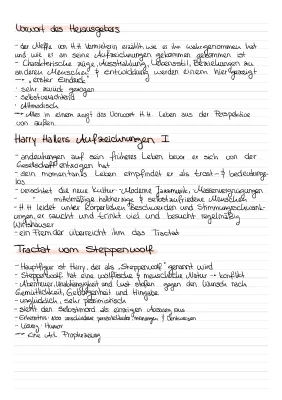 Vorwort des Herausgebers
- der Neffe von H.H Vermieterin erzählt wie er ihn wahrgenommen hat
und wie er an seine Aufzeichnungen gekommen gekommen ist
- Charakterische züge, Ausstrahlung, Lebensstil, Beziehungen zu
anderen Menschen & Entwicklung werden einem hier gezeigt
→ " erster Eindruck
- sehr zurück gezogen
- selbstverachtend
- Altmodisch
→ Alles in einem zeigt das Vorwort H.H Leben aus der Perspektive
von außen.
Harry Hallers Aufzeichnungen I
- andeutungen auf sein früheres Leben bevor er sich von der
Gesellschaft entzogen hat
- sein momentanes Leben empfindet er als trost- & bedeutungs-
los
- verachtet die neue Kultur - Moderne Jazzmusik, Massenvergnügungen
- " mittelmäßige, halbherzige & selbstzufriedene Menschen
- H.H leidet unter körperlichen Beschwerden und Stimmungsschwank-
ungen, er raucht und trinkt viel und besucht regelmäßig
Wirtshäuser
- ein Fremder überreicht ihm das Tractat
Tractat vom Steppenwolf
- Hauptfigur ist Harry, der als "Steppenwolf" genannt wird
- Steppenwolf hat eine wölfische & menschliche Natur → konflikt
- Abenteuer, Unabhängigkeit und Lust stoßen gegen den Wunsch nach
Gemütlichkeit, Geborgenheit und Hingabe
- unglücklich, sehr pessimistisch
- sieht den Selbstmord als einzigen Ausweg aus
- Erkenntnis: 1000 verschiedene
- Lösung: Humor
→ Eine Art Prophezeiung